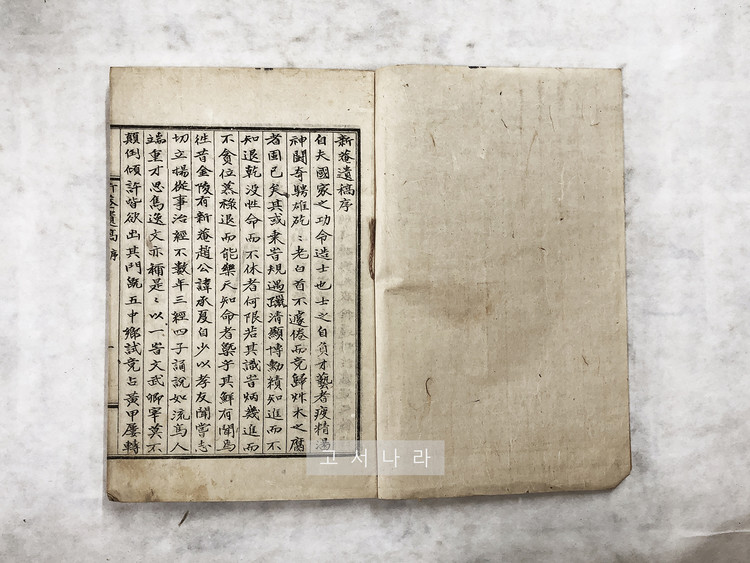 新菴遺稿序
自夫國家之功命造士也士之自負才藝者疲精湯
神鬪奇騁雄矻〻老白首不遽倦而竟歸㳍木之腐
者固已矣其或乘時規遇躐清顯博勳績知進而不
知退乾没性命而不休者何限若其識時炳幾進而
不貪位慕祿退而能樂天知命者槩乎其鮮有聞焉
徃昔金陵有新菴趙公諱承夏自少以孝友聞嘗志
切立揚從事治經不數年三經四子誦說如流爲人
端重才思雋逸文亦稱是〻以一時文武卿宰莫不
顚倒傾許皆欲出其門觝五中鄉試竟占黃甲屢轉
新菴遺稿 序
고서나라